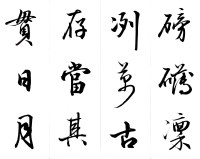 磅礴凛
冽萬古
存當其
貫日月